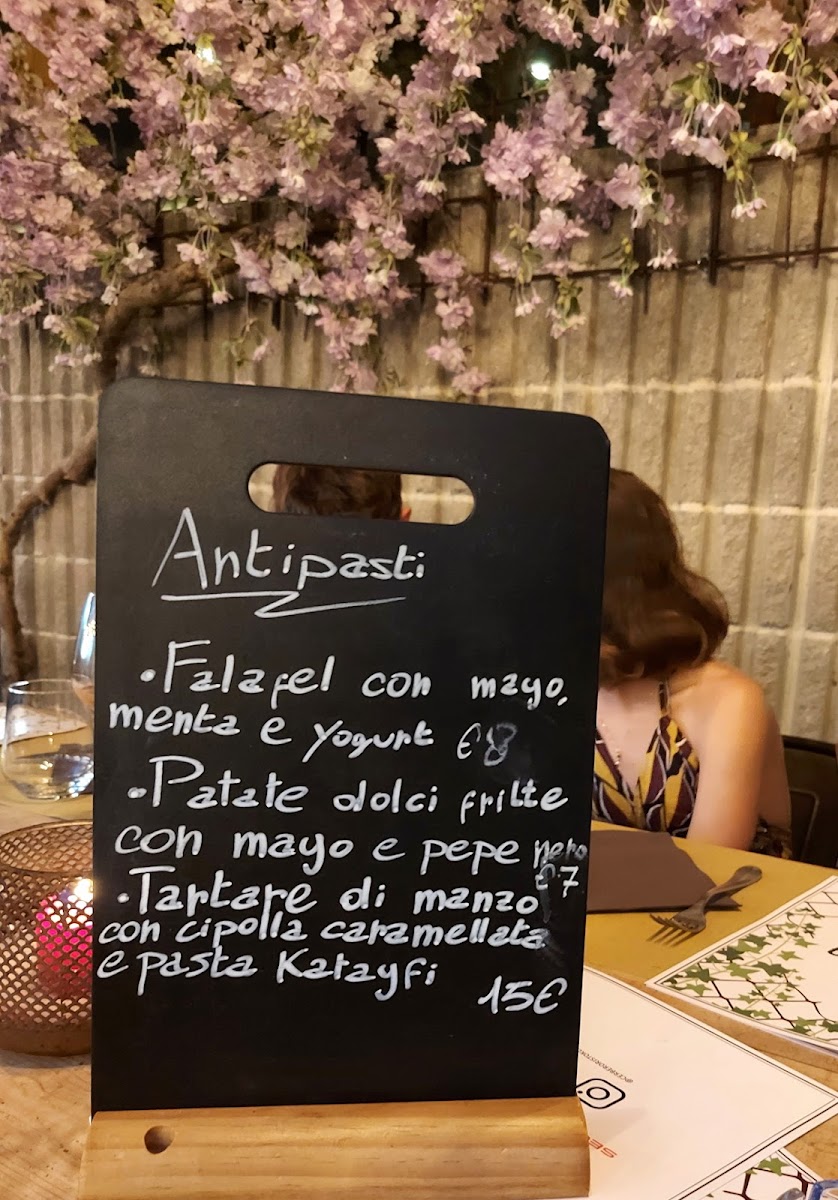 Antipasti
• Falafel con mayo,
menta e yogurt €8
• Patate dolci fritte
con mayo e pepe nero
€7
• Tartare di manzo
con cipolla caramellata
e pasta Katayfi
15€